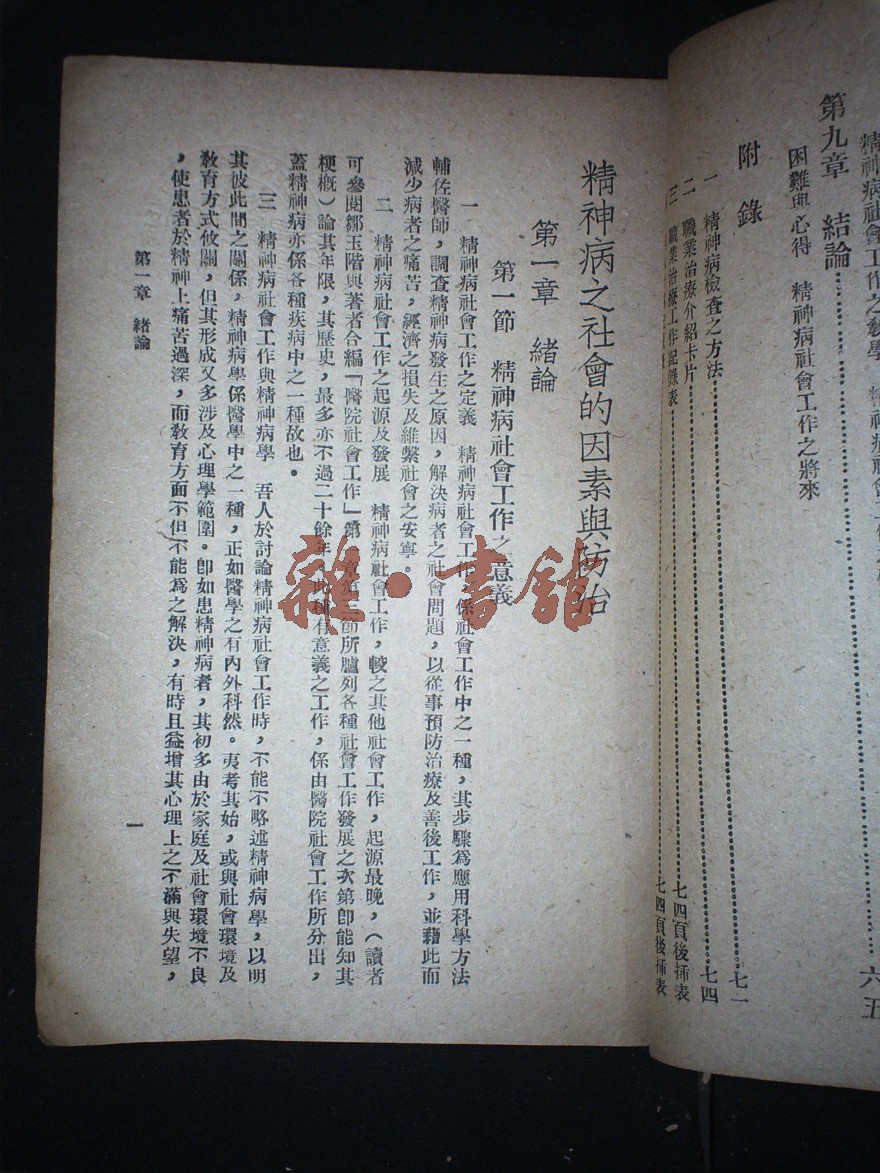 第九章　結論 六五
困難與心得　精神病社會工作之將來
附錄
一　精神病檢查之方法 七一
二　職業治療介紹卡片 七四
三　職業治療工作記錄表 七四頁後揷表
七四頁後揷表
精神病之社會的因素與防治
第一章　緒論
第一節　精神病社會工作之意義
一　精神病社會工作之定義　精神病社會工作，係社會工作中之一種，其步驟爲應用科學方法
輔佐醫師，調查精神病發生之原因，解決病者之社會問題，以從事預防治療及善後工作，並藉此而
減少病者之痛苦，經濟之損失及維繫社會之安寧。
二　精神病社會工作之起源及發展　精神病社會工作，較之其他社會工作，起源最晚，（讀者
可參閱鄒玉階與著者合編「醫院社會工作」第一章第二節所臚列各種社會工作發展之次第卽能知其
梗槪）論其年限，其歷史，最多亦不過二十餘年，此種有意義之工作，係由醫院社會工作所分出，
蓋精神病亦係各種疾病中之一種故也。
三　精神病社會工作與精神病學　吾人於討論精神病社會工作時，不能不略述精神病學，以明
其彼此間之關係，精神病學係醫學中之一種，正如醫學之有內外科然。夷考其始，或與社會環境及
敎育方式攸關，但其形成又多涉及心理學範圍。卽如患精神病者，其初多由於家庭及社會環境不良
，使患者於精神上痛苦過深，而敎育方面不但不能爲之解決，有時且益增其心理上之不滿與失望，
第一章　緒論
一
雜·書館